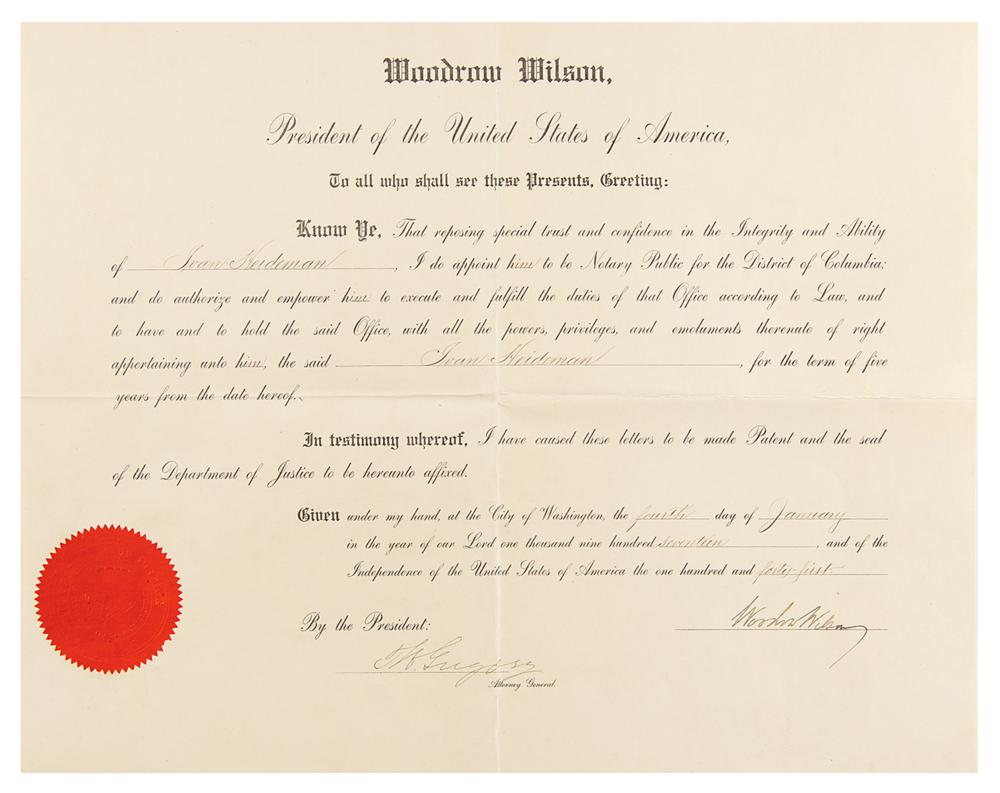 Woodrow Wilson,
President of the United States of America,
To all who shall see these Presents, Greeting:
Know Ye, That reposing special trust and confidence in the Integrity and Ability
of Ivan Heideman, I do appoint him to be Notary Public for the District of Columbia;
and do authorize and empower him to execute and fulfill the duties of that Office according to Law, and
to have and to hold the said Office, with all the powers, privileges, and emoluments thereunto of right
appertaining unto him, the said Ivan Heideman, for the term of five
years from the date hereof.
In testimony whereof, I have caused these letters to be made Patent and the seal
of the Department of Justice to be hereunto affixed.
Given under my hand, at the City of Washington, the fourth day of January
in the year of our Lord one thousand nine hundred seventeen, and of the
Independence of the United States of America the one hundred and forty-first
By the President:
Woodrow Wilson
T.W. Gregory
Attorney General.